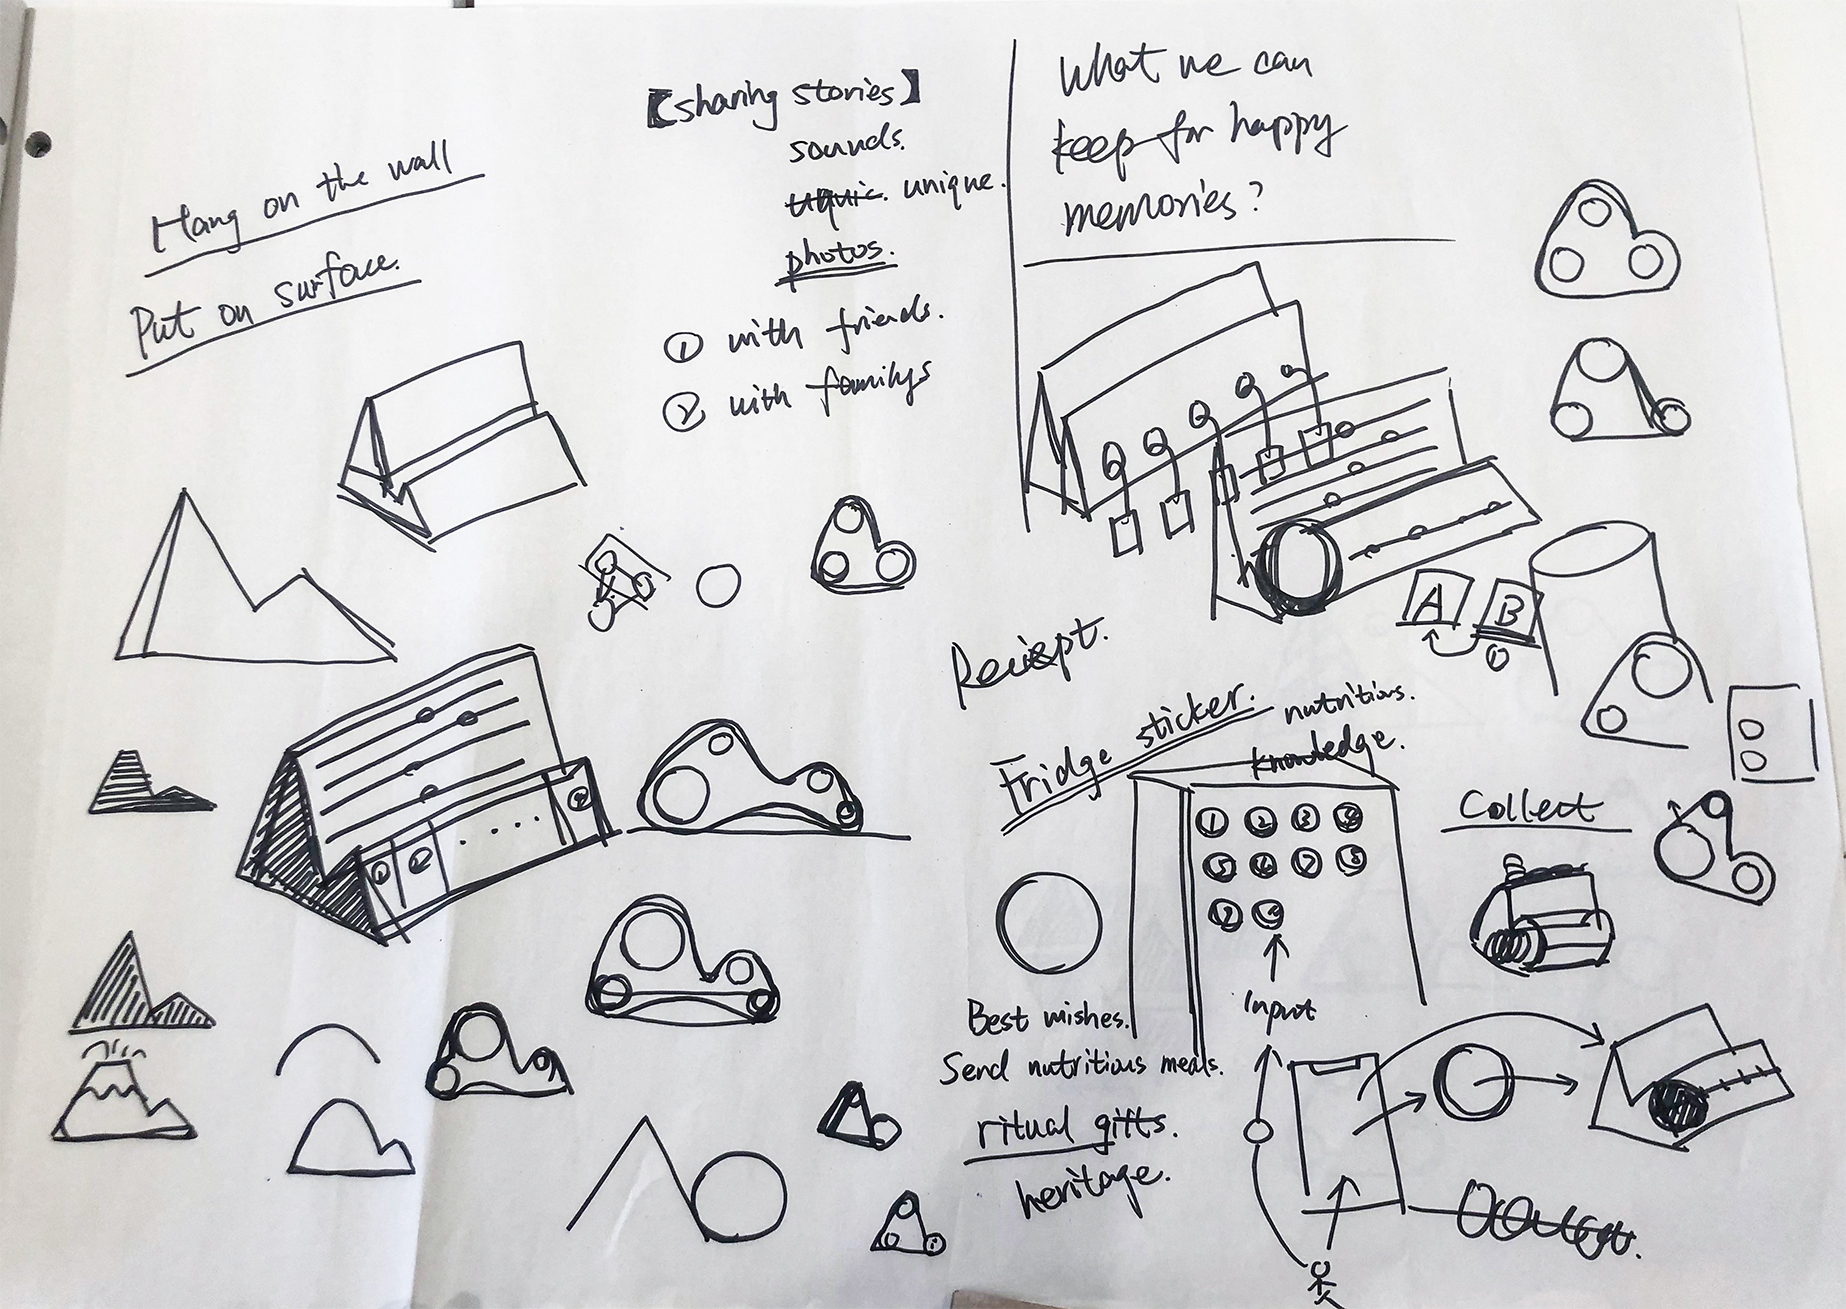 Hang on the wall
Put on surface.
【sharing stories】
sounds.
unique.
photos.
① with friends.
② with familys
What we can
keep for happy
memories?
A B
①
Reciept.
Fridge sticker.
nutritions.
knowledge.
① ② ③ ④
⑤ ⑥ ⑦ ⑧
Input
Collect
Best wishes.
Send nutritious meals.
ritual gifts.
heritage.
① ② ...